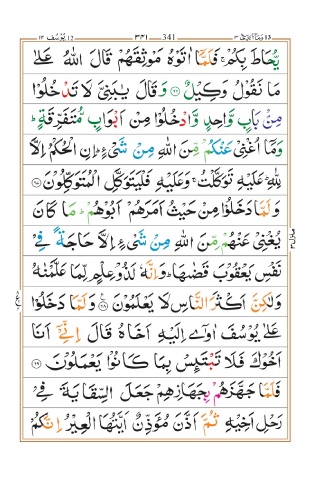 يوسف ١٢ ٣٤١ 341 وما ابرئ ١٣
يُّحَاطَ بِكُمْ ۚ فَلَمَّآ اٰتَوْهُ مَوْثِقَهُمْ قَالَ اللّٰهُ عَلٰى
مَا نَقُوْلُ وَكِيْلٌ ﴿۶۶﴾ وَقَالَ يٰبَنِىَّ لَا تَدْخُلُوْا
مِنْۢ بَابٍ وَّاحِدٍ وَّادْخُلُوْا مِنْ اَبْوَابٍ مُّتَفَرِّقَةٍ ؕ
وَمَاۤ اُغْنِىْ عَنْكُمْ مِّنَ اللّٰهِ مِنْ شَىْءٍ ؕ اِنِ الْحُكْمُ اِلَّا
لِلّٰهِ ؕ عَلَيْهِ تَوَكَّلْتُ ۚ وَعَلَيْهِ فَلْيَتَوَكَّلِ الْمُتَوَكِّلُوْنَ ﴿۶۷﴾
وَلَمَّا دَخَلُوْا مِنْ حَيْثُ اَمَرَهُمْ اَبُوْهُمْ ؕ مَا كَانَ
يُغْنِىْ عَنْهُمْ مِّنَ اللّٰهِ مِنْ شَىْءٍ اِلَّا حَاجَةً فِىْ
نَفْسِ يَعْقُوْبَ قَضٰٮهَا ؕ وَاِنَّهٗ لَذُوْ عِلْمٍ لِّمَا عَلَّمْنٰهُ
وَلٰـكِنَّ اَكْثَرَ النَّاسِ لَا يَعْلَمُوْنَ ﴿۶۸﴾ وَلَمَّا دَخَلُوْا
عَلٰى يُوْسُفَ اٰوٰٓى اِلَيْهِ اَخَاهُ قَالَ اِنِّىْۤ اَنَا
اَخُوْكَ فَلَا تَبْتَـئِسْ بِمَا كَانُوْا يَعْمَلُوْنَ ﴿۶۹﴾
فَلَمَّا جَهَّزَهُمْ بِجَهَازِهِمْ جَعَلَ السِّقَايَةَ فِىْ
رَحْلِ اَخِيْهِ ثُمَّ اَذَّنَ مُؤَذِّنٌ اَيَّتُهَا الْعِيْرُ اِنَّكُمْ